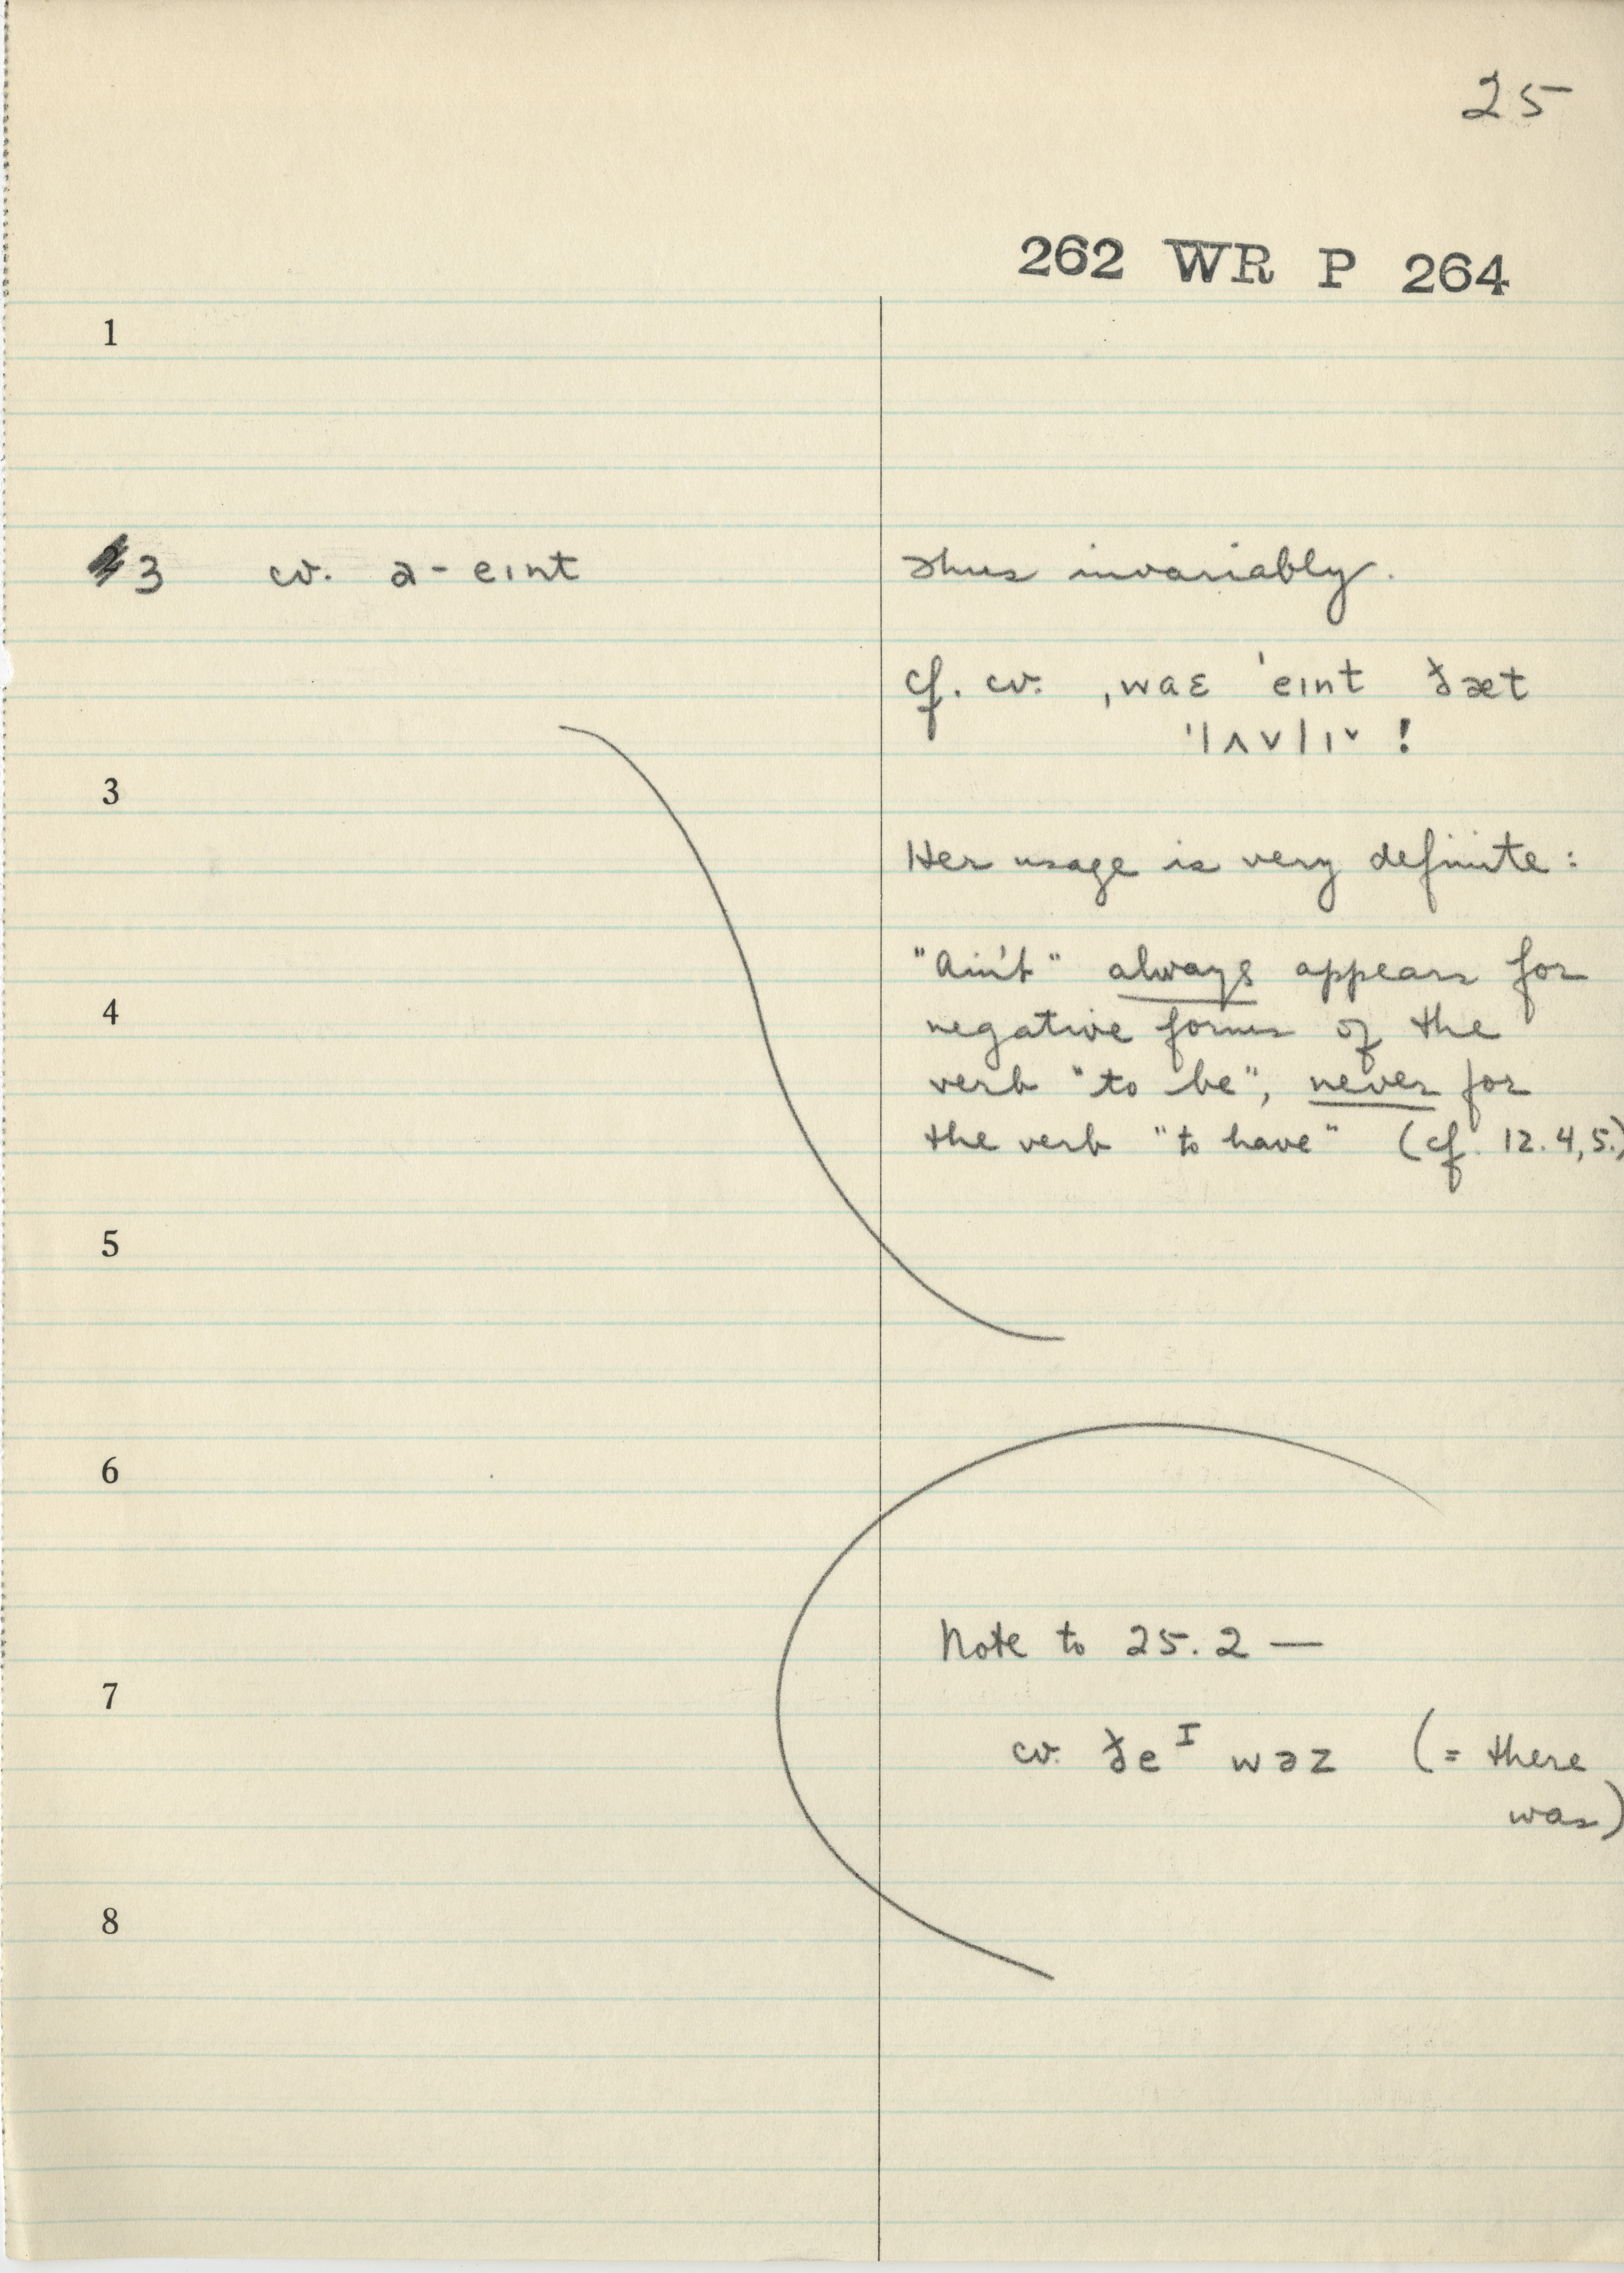 25
262 WR P 264
1
3 cv. a-eɪnt
Thus invariably.
cf. cv. ˌwaɛ ˈeɪnt ðæt
ˈlʌvlɪ˅ !
3
Her usage is very definite:
"Ain't" always appears for
4
negative forms of the
verb "to be", never for
the verb "to have" (cf. 12.4,5.)
5
6
Note to 25.2 —
7
cv. ðeᴵ wəz (= there
was)
8